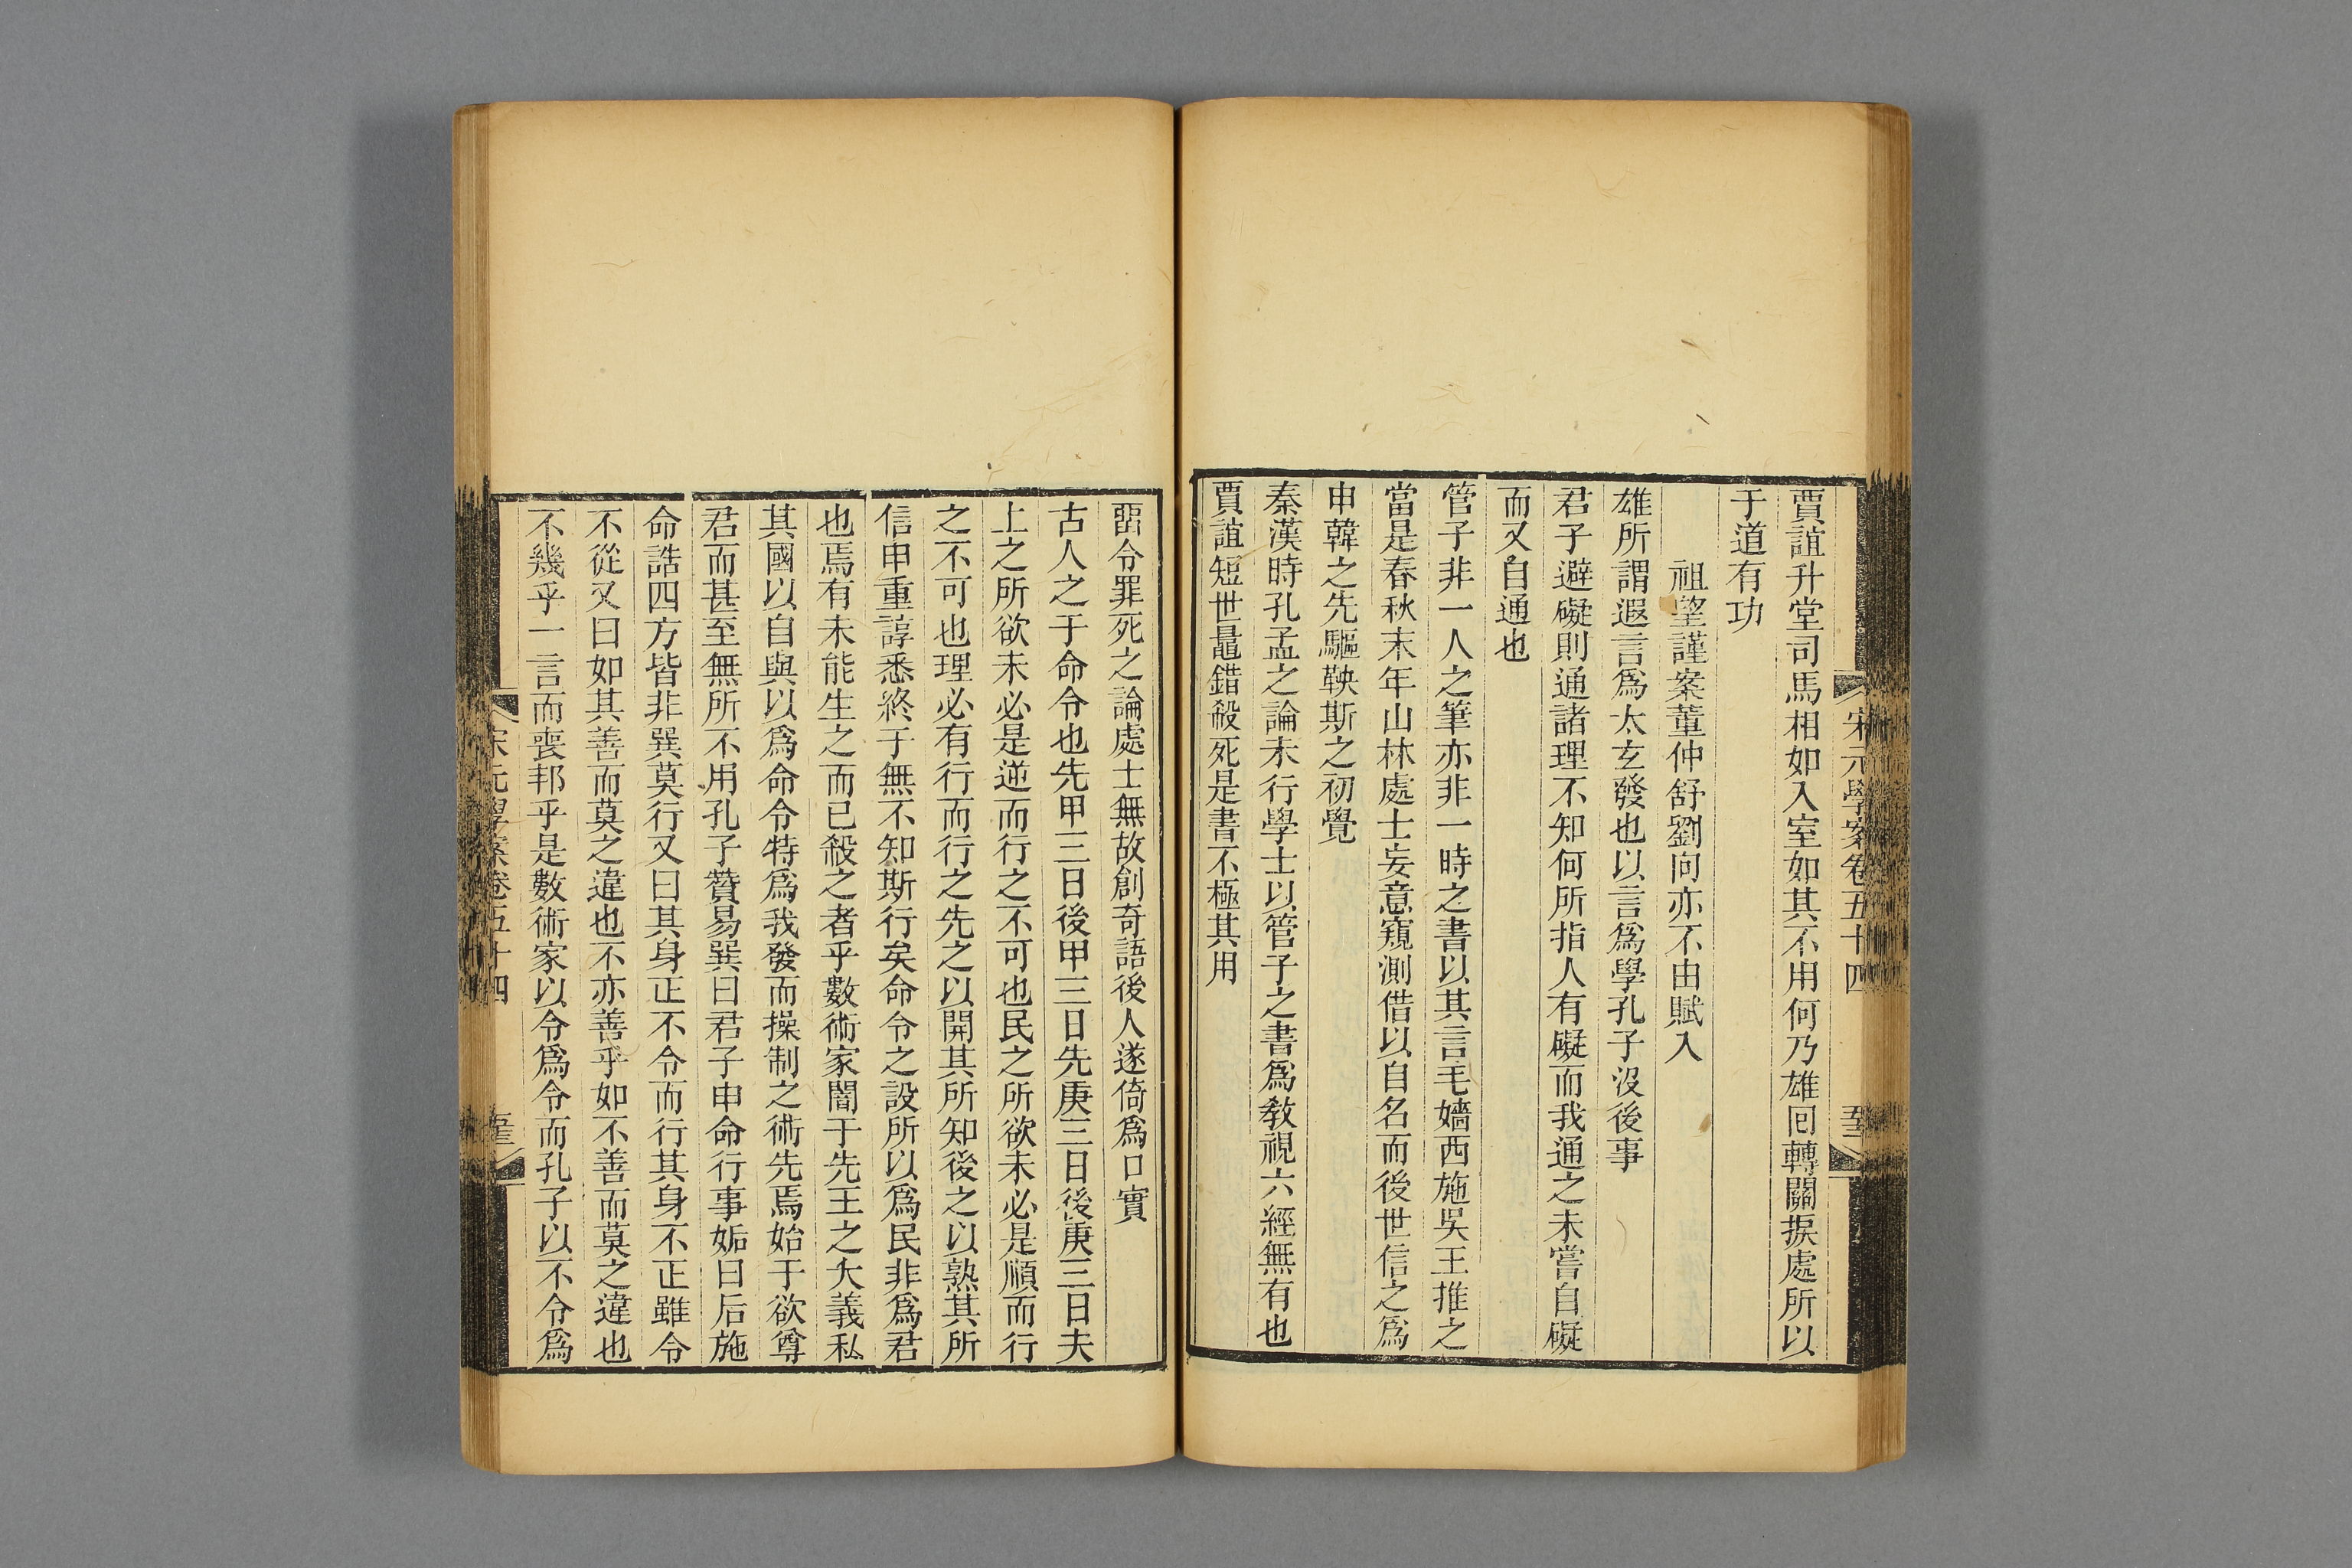 宋元學案卷五十四
賈誼升堂司馬相如入室如其不用何乃雄囘轉關捩處所以
于道有功
祖望謹案董仲舒劉向亦不由賦入
雄所謂遐言爲太玄發也以言爲學孔子沒後事
君子避礙則通諸理不知何所指人有礙而我通之未嘗自礙
而又自通也
管子非一人之筆亦非一時之書以其言毛嬙西施吳王推之
當是春秋末年山林處士妄意窺測借以自名而後世信之爲
申韓之先驅鞅斯之初覺
秦漢時孔孟之論未行學士以管子之書爲教視六經無有也
賈誼短世鼂錯殺死是書不極其用
畱令罪死之論處士無故創奇語後人遂倚爲口實
古人之于命令也先甲三日後甲三日先庚三日後庚三日夫
上之所欲未必是逆而行之不可也民之所欲未必是順而行
之不可也理必有行而行之先之以開其所知後之以熟其所
信申重諄悉終于無不知斯行矣命令之設所以爲民非爲君
也焉有未能生之而已殺之者乎數術家闇于先王之大義私
其國以自與以爲命令特爲我發而操制之術先焉始于欲尊
君而甚至無所不用孔子贊易巽曰君子申命行事姤曰后施
命誥四方皆非巽莫行又曰其身正不令而行其身不正雖令
不從又曰如其善而莫之違也不亦善乎如不善而莫之違也
不幾乎一言而喪邦乎是數術家以令爲令而孔子以不令爲
宋元學案卷五十四